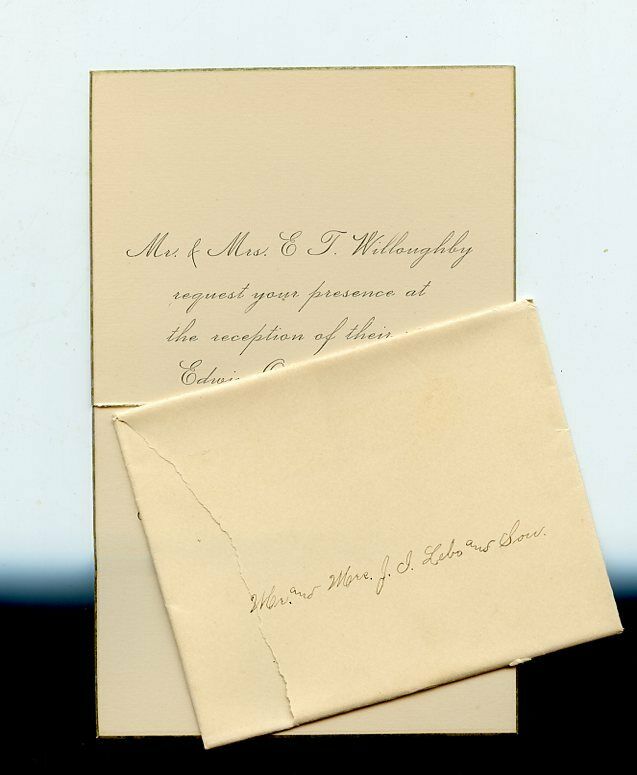 Mr. & Mrs. E T. Willoughby
request your presence at
the reception of their
Mr. and Mrs. J. I. Lebo and Son.